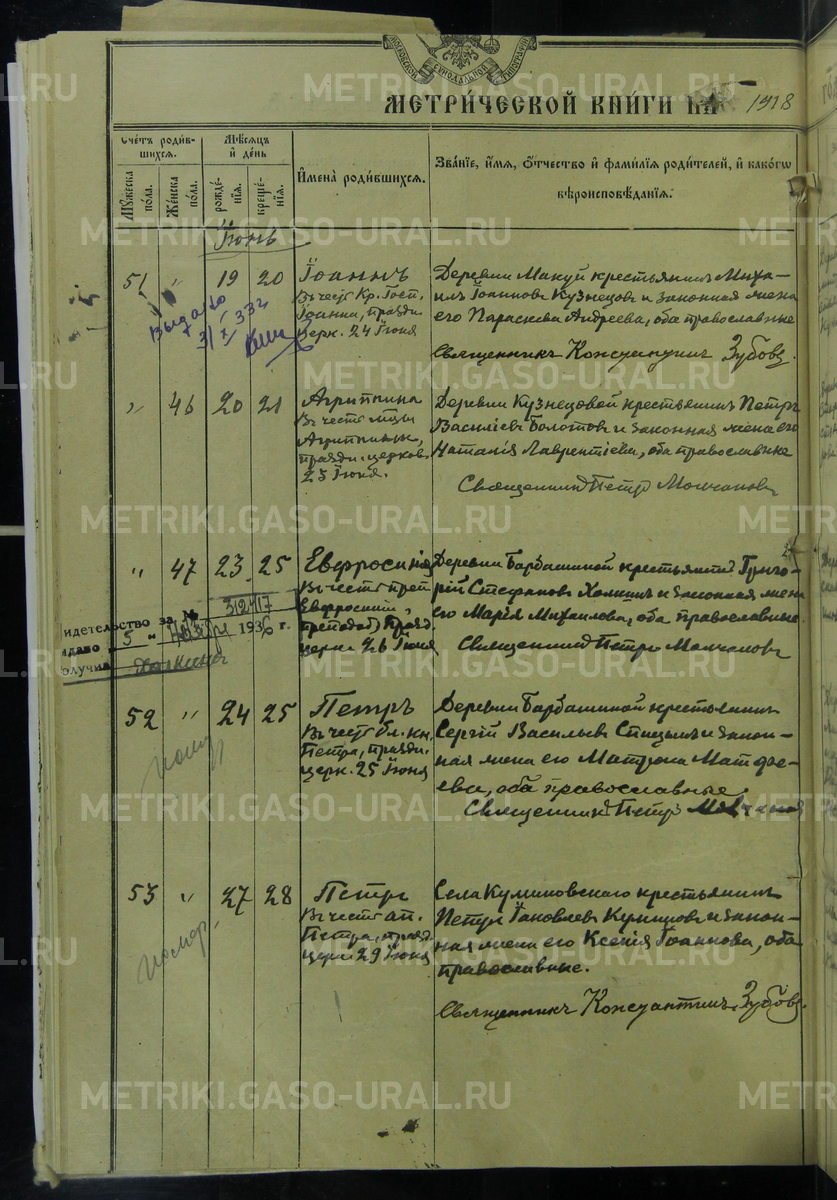 МОСКОВСКОЙ СѴНОДАЛЬНОЙ ТИПОГРАФІИ
МЕТРИ́ЧЕСКОЙ КНИ́ГИ НА 1918
Сче́тъ роди́в-
шихся.
Мѣ́сяцъ
и де́нь
Му́жеска
по́ла.
Же́нска
по́ла.
рожде-
нїя.
креще-
нїя.
И҆мена̀ роди́вшихся.
Зва́нїе, и҆́мя, ѻ҆́тчество и҆ фами́лїя роди́телей, и҆ како́гѡ
вѣроисповѣ́данїя.
Іюнь
51 " 19 20 Іоаннъ
Въ честь Кр. Госп.
Іоанна, праздн.
церк. 24 Іюня
Деревни Макуй крестьянинъ Миха-
илъ Іоанновъ Кузнецовъ и законная жена
его Параскева Андреева, оба православные
Священникъ Константинъ Зубовъ.
Выдано
" 46 20 21 Агриппина
Въ честь мцы
Агриппины,
праздн. церков.
23 Іюня.
Деревни Кузнецовой крестьянинъ Петръ
Василіевъ Болотовъ и законная жена его
Наталія Лаврентіева, оба православные
Священникъ Петръ Молчановъ
" 47 23 25 Евфросинія
Въ честь преп
Евфросиніи,
празд
церк. 25 Іюня
Деревни Барбашиной крестьянинъ Григо-
рій Стефановъ Хомкинъ и законная жена
его Марія Михаилова, оба православные.
Священникъ Петръ Молчановъ
идетельство за № 312417
ыдано " 5 " 1936 г.
олучил
52 " 24 25 Петръ
Въ честь бл. кн.
Петра, праздн.
церк. 25 Іюня
Деревни Барбашиной крестьянинъ
Сергій Васильевъ Спицынъ и закон-
ная жена его Матрона Матѳе-
ева, оба православные.
Священникъ Петръ Молчановъ
53 " 27 28 Петръ
Въ честь ап.
Петра, празд.
церк. 29 Іюня
Села Куминовскаго крестьянинъ
Петръ Іаковлевъ Куминовъ и закон-
ная жена его Ксенія Іоаннова, оба
православные.
Священникъ Константинъ Зубовъ.
помер.
METRIKI.GASO-URAL.RU